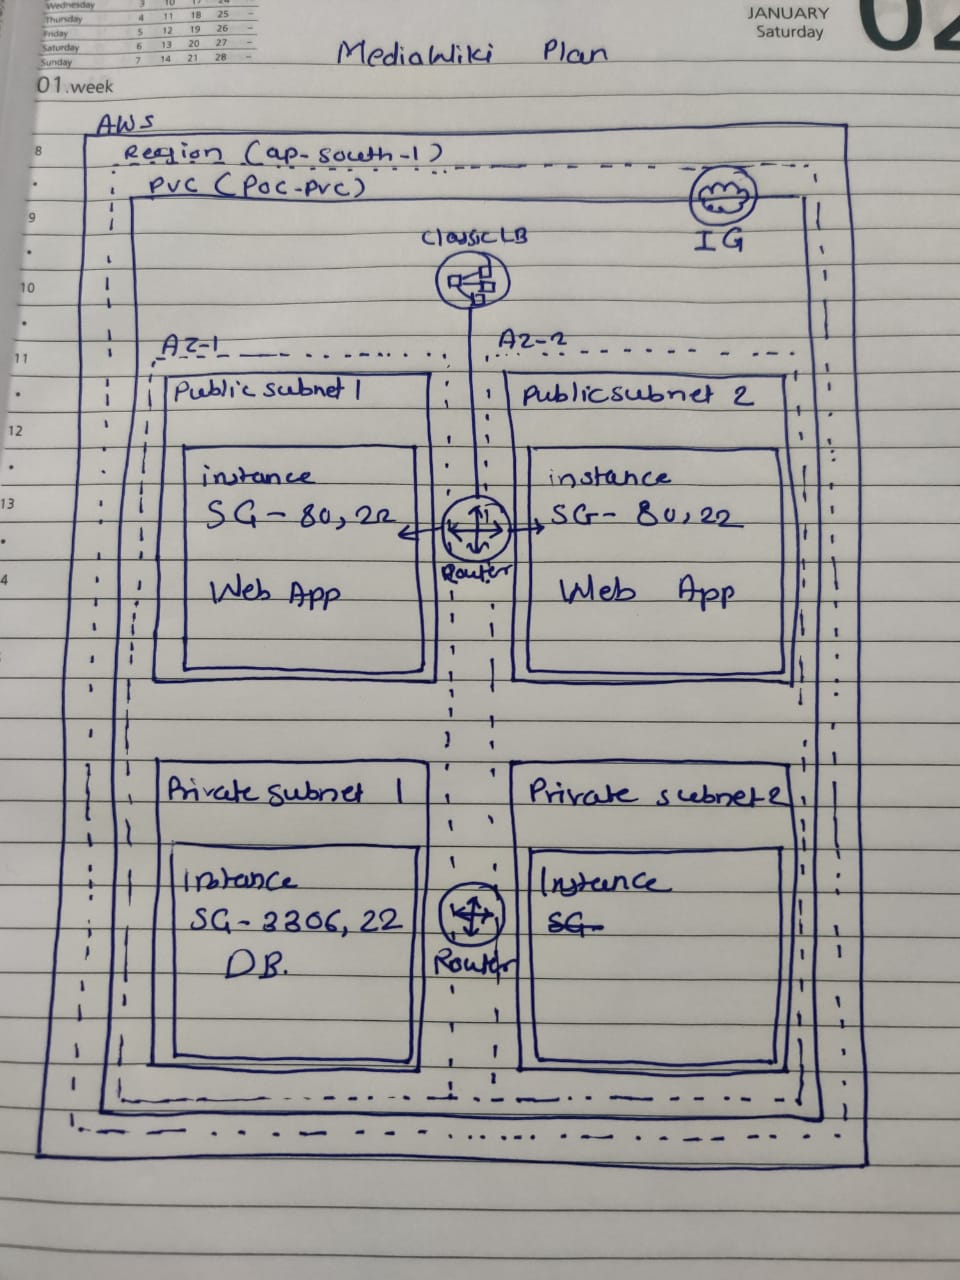 Wednesday 3 10 17 24 -
Thursday 4 11 18 25 -
Friday 5 12 19 26 -
Saturday 6 13 20 27 -
Sunday 7 14 21 28 -
01.week
JANUARY
Saturday
02
MediaWiki Plan
AWS
Region (ap-south-1)
PVC (POC-PVC)
IG
Classic LB
AZ-1
AZ-2
Public subnet 1
instance
SG - 80, 22
Web App
Public subnet 2
instance
SG - 80, 22
Web App
Router
Private subnet 1
Instance
SG - 3306, 22
DB.
Private subnet 2
Instance
SG-
Router
8
9
10
11
12
13
4